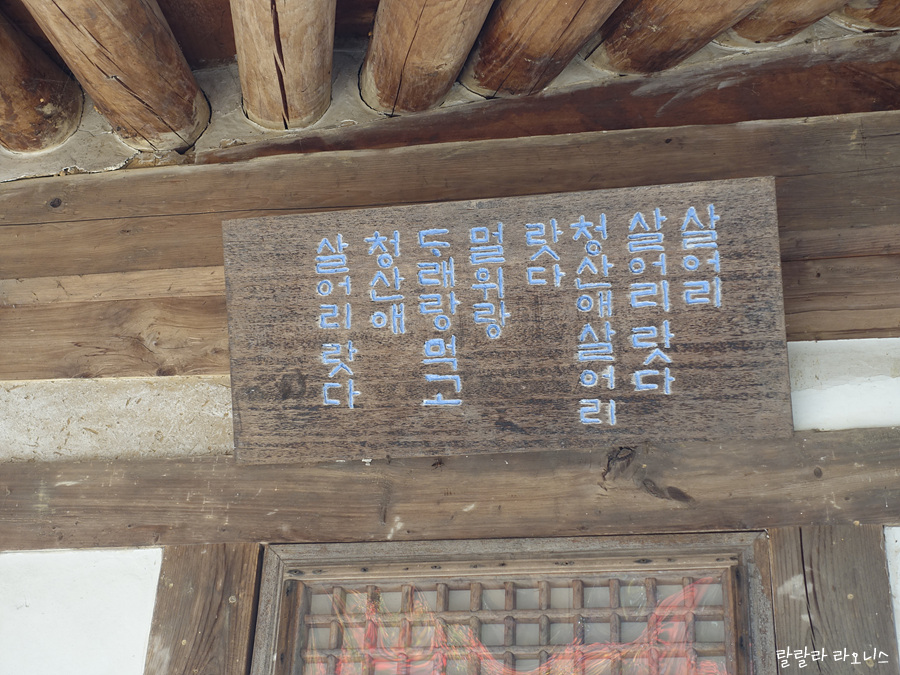 살어리
살어리랏다
청산애살어리
랏다
멀위랑
ᄃᆞ래랑먹고
청산애
살어리랏다
랄랄라 라오니스